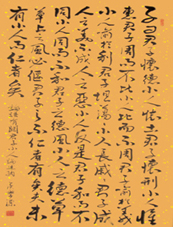 子曰君子懷德小人懷土君子懷刑小人懷
惠君子周而不比小人比而不周君子喻於義
小人喻於利君子坦蕩蕩小人長戚戚君子成
人之美不成人之惡小人反是君子和而不
同小人同而不和君子之德風小人之德草
草上之風必偃君子而不仁者有矣夫未
有小人而仁者也